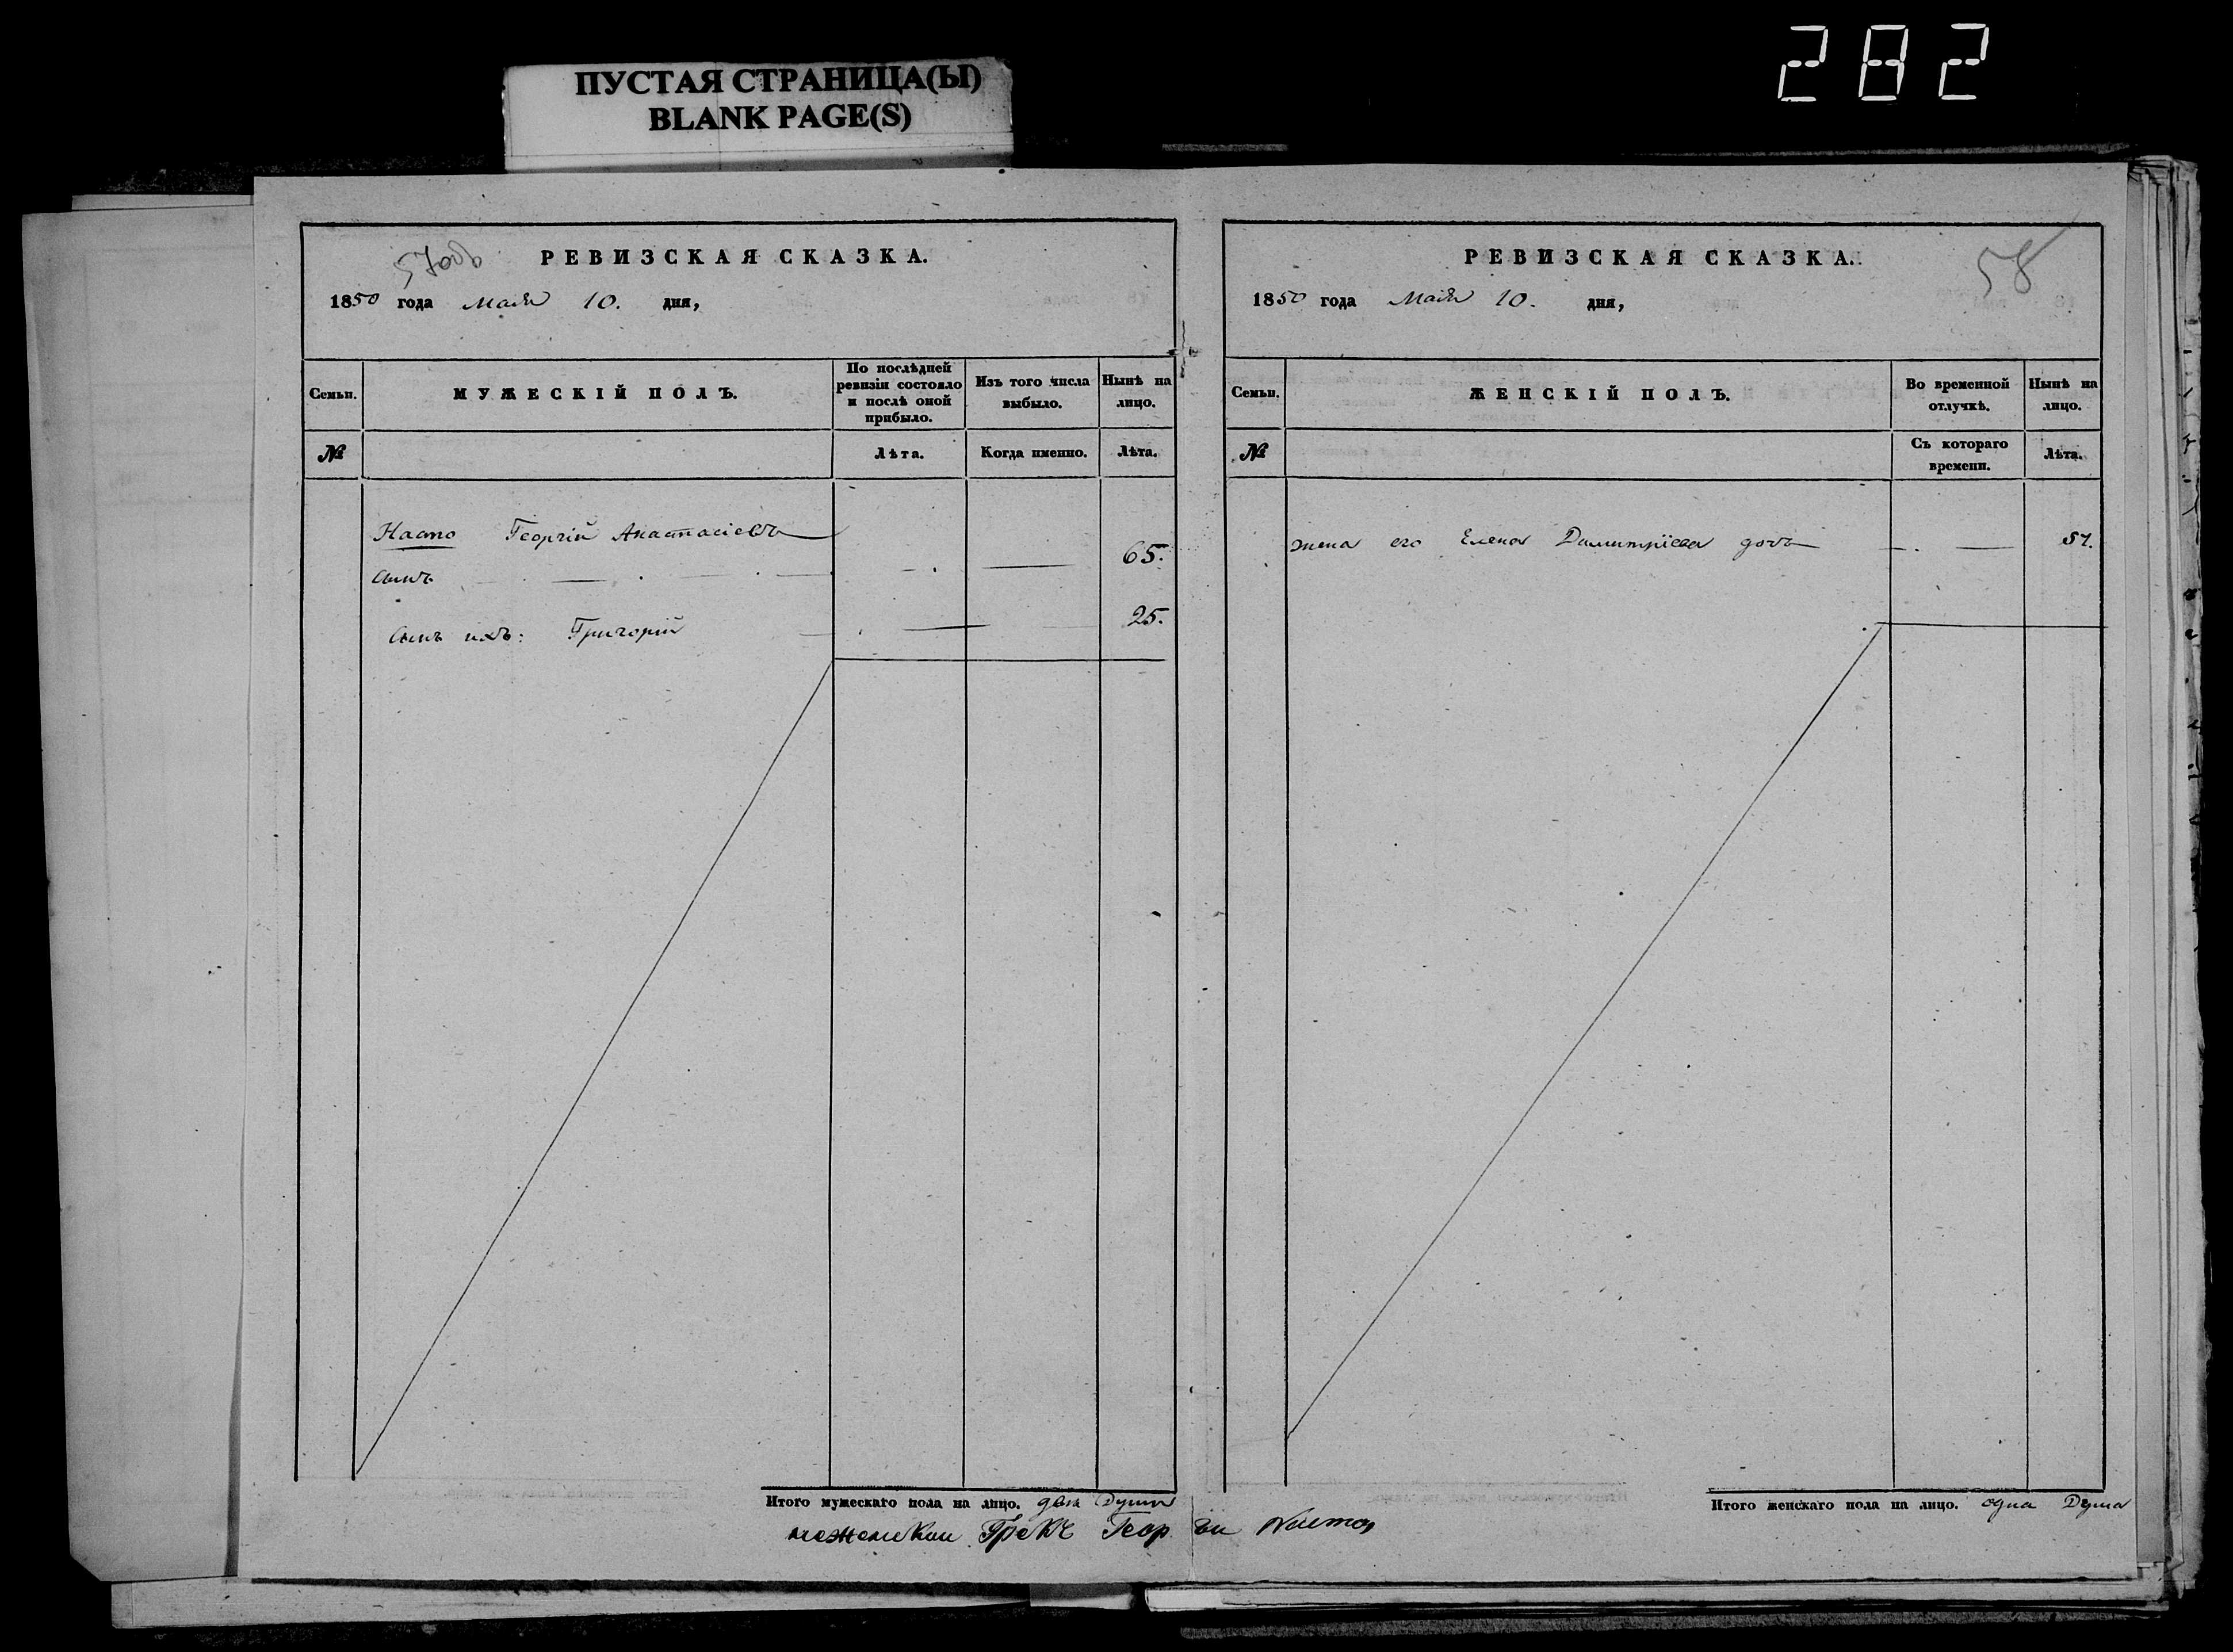 ПУСТАЯ СТРАНИЦА(Ы)
BLANK PAGE(S)
282
57об
РЕВИЗСКАЯ СКАЗКА.
1850 года Мая 10. дня,
Семьи.
МУЖЕСКІЙ ПОЛЪ.
По послѣдней ревизіи состояло и послѣ оной прибыло.
Изъ того числа выбыло.
Нынѣ на лицо.
№
Лѣта.
Когда именно.
Лѣта.
Насто Георгій Анастасіевъ
сынъ 65.
Сынъ ихъ: Григорій 25.
Итого мужескаго пола на лицо. две Души
58
РЕВИЗСКАЯ СКАЗКА.
1850 года Мая 10. дня,
Семьи.
ЖЕНСКІЙ ПОЛЪ.
Во временной отлучкѣ.
Нынѣ на лицо.
№
Съ котораго времени.
Лѣта.
жена его Елена Димитріева дочь 57.
Итого женскаго пола на лицо. одна Душа
Грекъ Георгии Насто